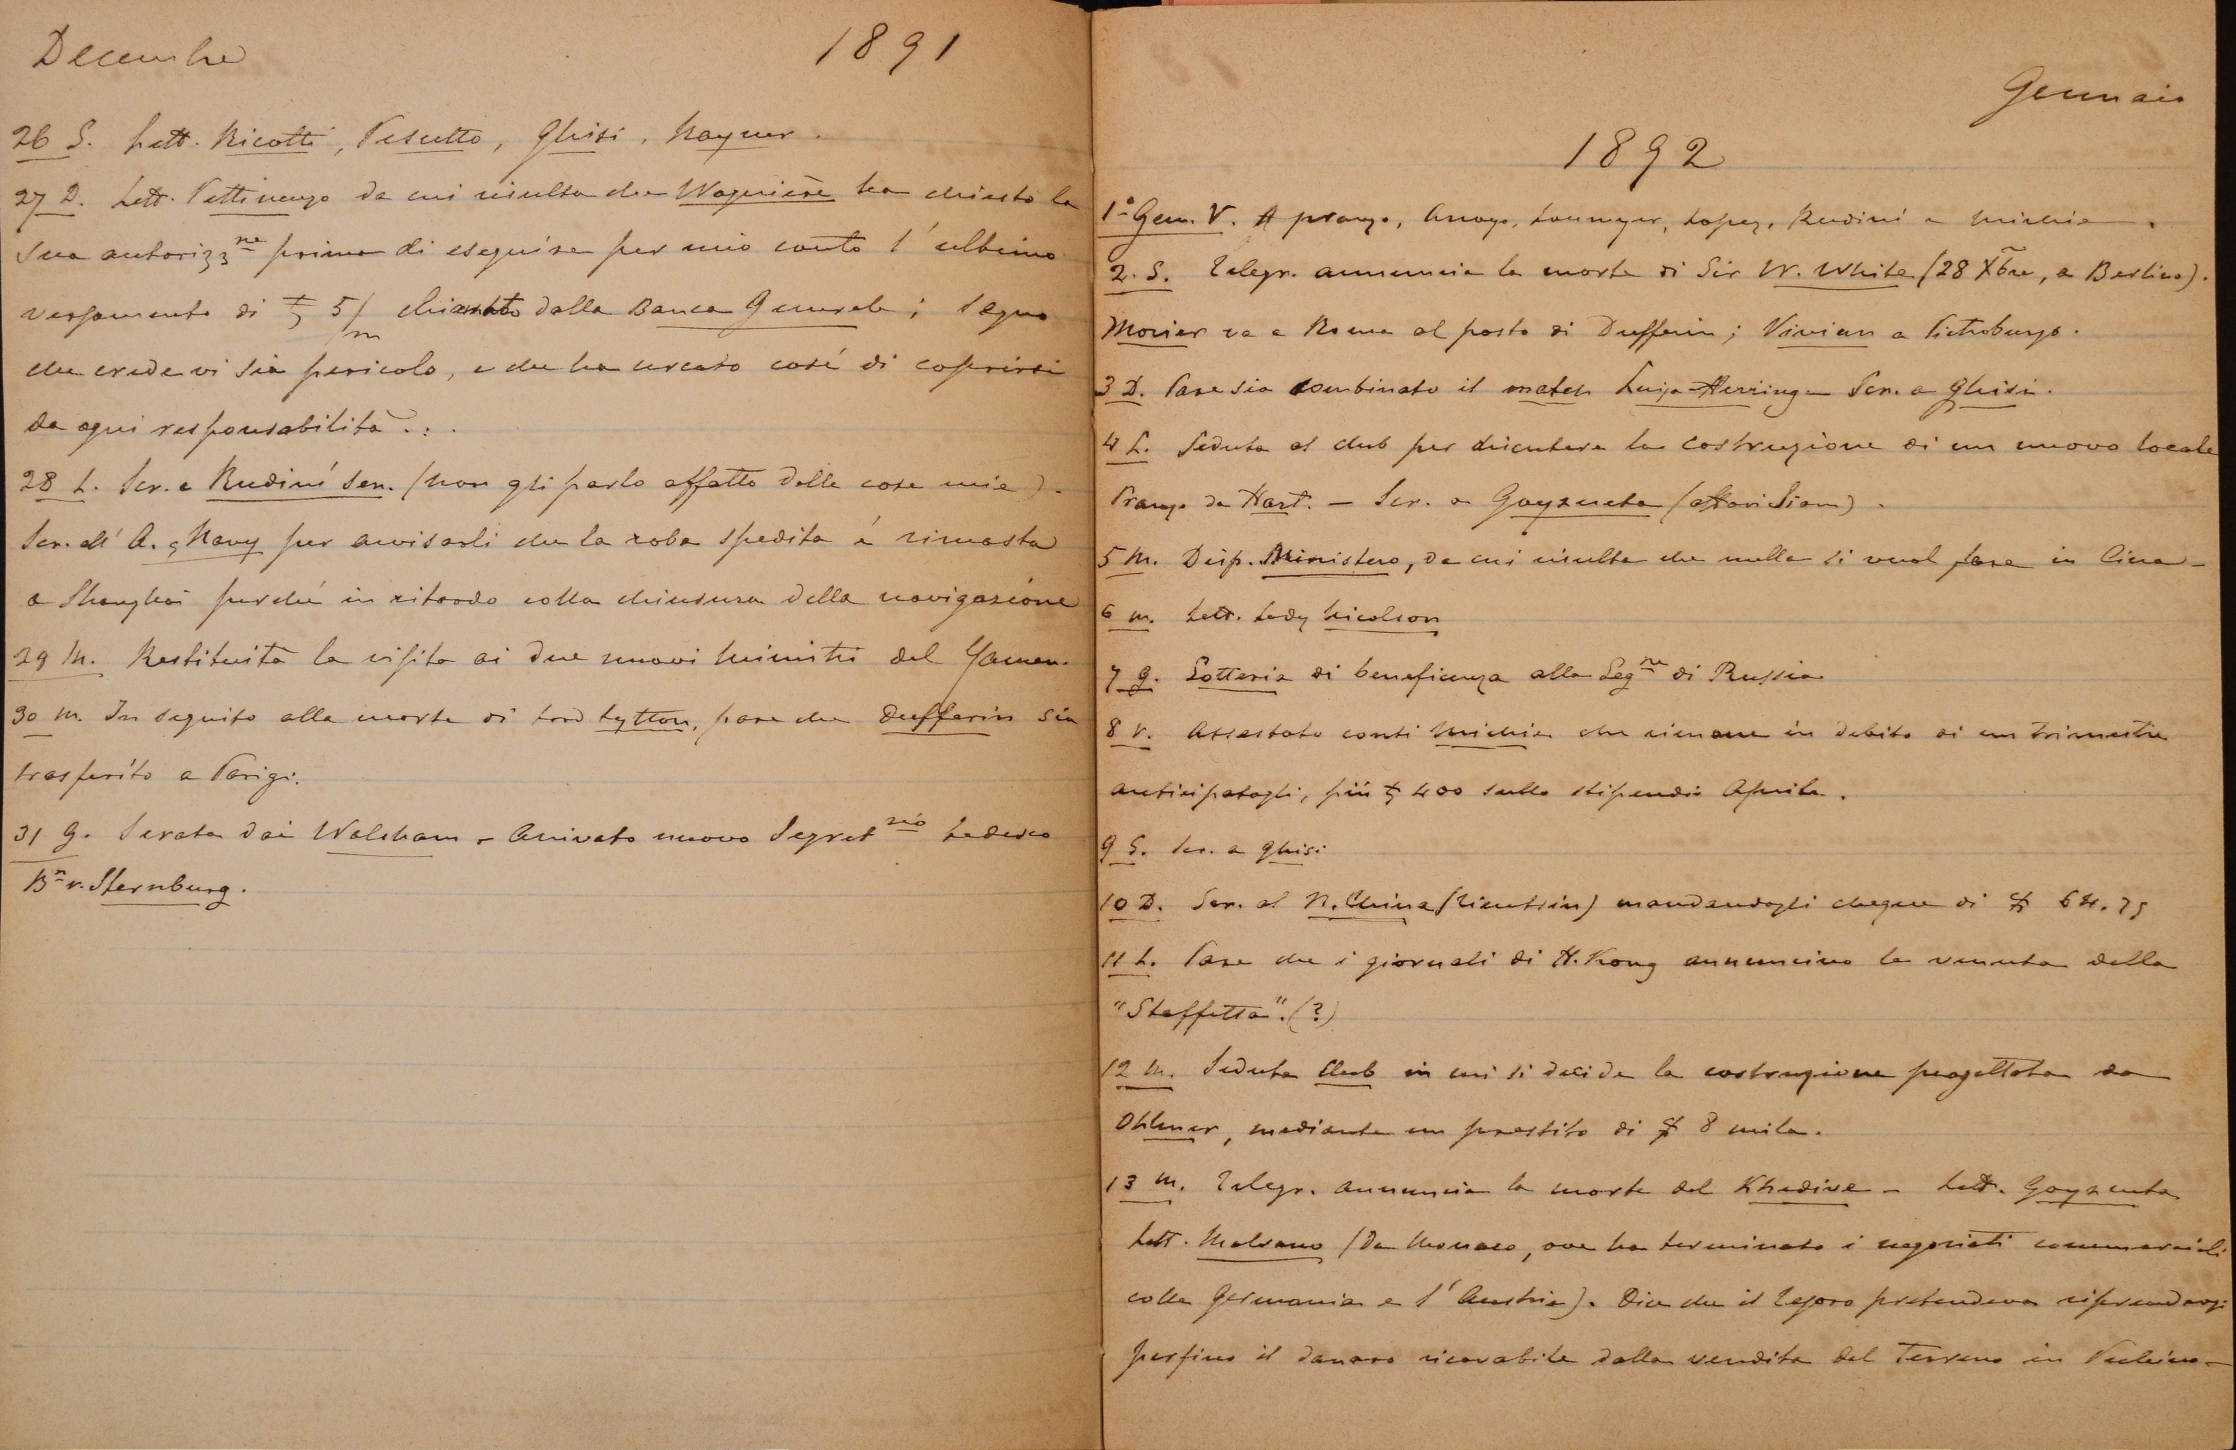 Decembre 1891
26 S. Lett. Ricotti, Pesutto, Ghisi, Nayner.
27 D. Lett. Pettinengo da cui risulta che Wagnière ha chiesto la
sua autorizzne prima di eseguire per mio conto l'ultimo
versamento di £ 5/m chiamato dalla Banca Generale; segno
che crede vi sia pericolo, e che ha cercato così di coprirsi
da ogni responsabilità...
28 L. Scr. a Rudinì Sen. (non gli parlo affatto delle cose mie).
Scr. all' A. & Navy per avvisarli che la roba spedita é rimasta
a Shanghai perché in ritardo colla chiusura della navigazione
29 M. Restituita la visita ai due nuovi Ministri del Yamen.
30 M. In seguito alla morte di Lord Lytton, pare che Dufferin sia
trasferito a Parigi.
31 G. Serata dai Walsham - Arrivato nuovo Segretrio tedesco
Bn v. Sternburg.
Gennaio
1892
1° Gen. V. A pranzo, Loumyer, Lopez, Rudinì e Michie.
2. S. Telegr. annuncia la morte di Sir W. White (28 Xbre, a Berlino).
Morier va a Roma al posto di Dufferin; Vivian a Pietroburgo.
3 D. Pare sia combinato il match Luiga-Herring - Scr. a Ghisi.
4 L. Seduta al club per discutere la costruzione di un nuovo locale
Pranzo da Hart. - Scr. a Goyzueta (affari Siam).
5 M. Disp. Ministero, da cui risulta che nulla si vuol fare in Cina -
6 M. Lett. Lady Nicolson
7 G. Lotteria di beneficenza alla Legne di Russia
8 V. Assestato conti Michie che rimane in debito di un trimestre
anticipatogli, più $ 400 sullo stipendio Aprile.
9 S. Scr. a Ghisi
10 D. Scr. al N. China (Tientsin) mandandogli cheque di $ 64.75
11 L. Pare che i giornali di H. Kong annuncino la venuta della
"Staffetta". (?)
12 M. Seduta Club in cui si decide la costruzione progettata da
Ohlmer, mediante un prestito di $ 8 mila.
13 M. Telegr. annuncia la morte del Khedive - Lett. Goyzueta
Lett. Malvano (da Monaco, ove ha terminato i negoziati commerciali
colla Germania e l'Austria). Dice che il Tesoro pretendeva riprendersi
perfino il danaro ricavabile dalla vendita del terreno in Pechino -